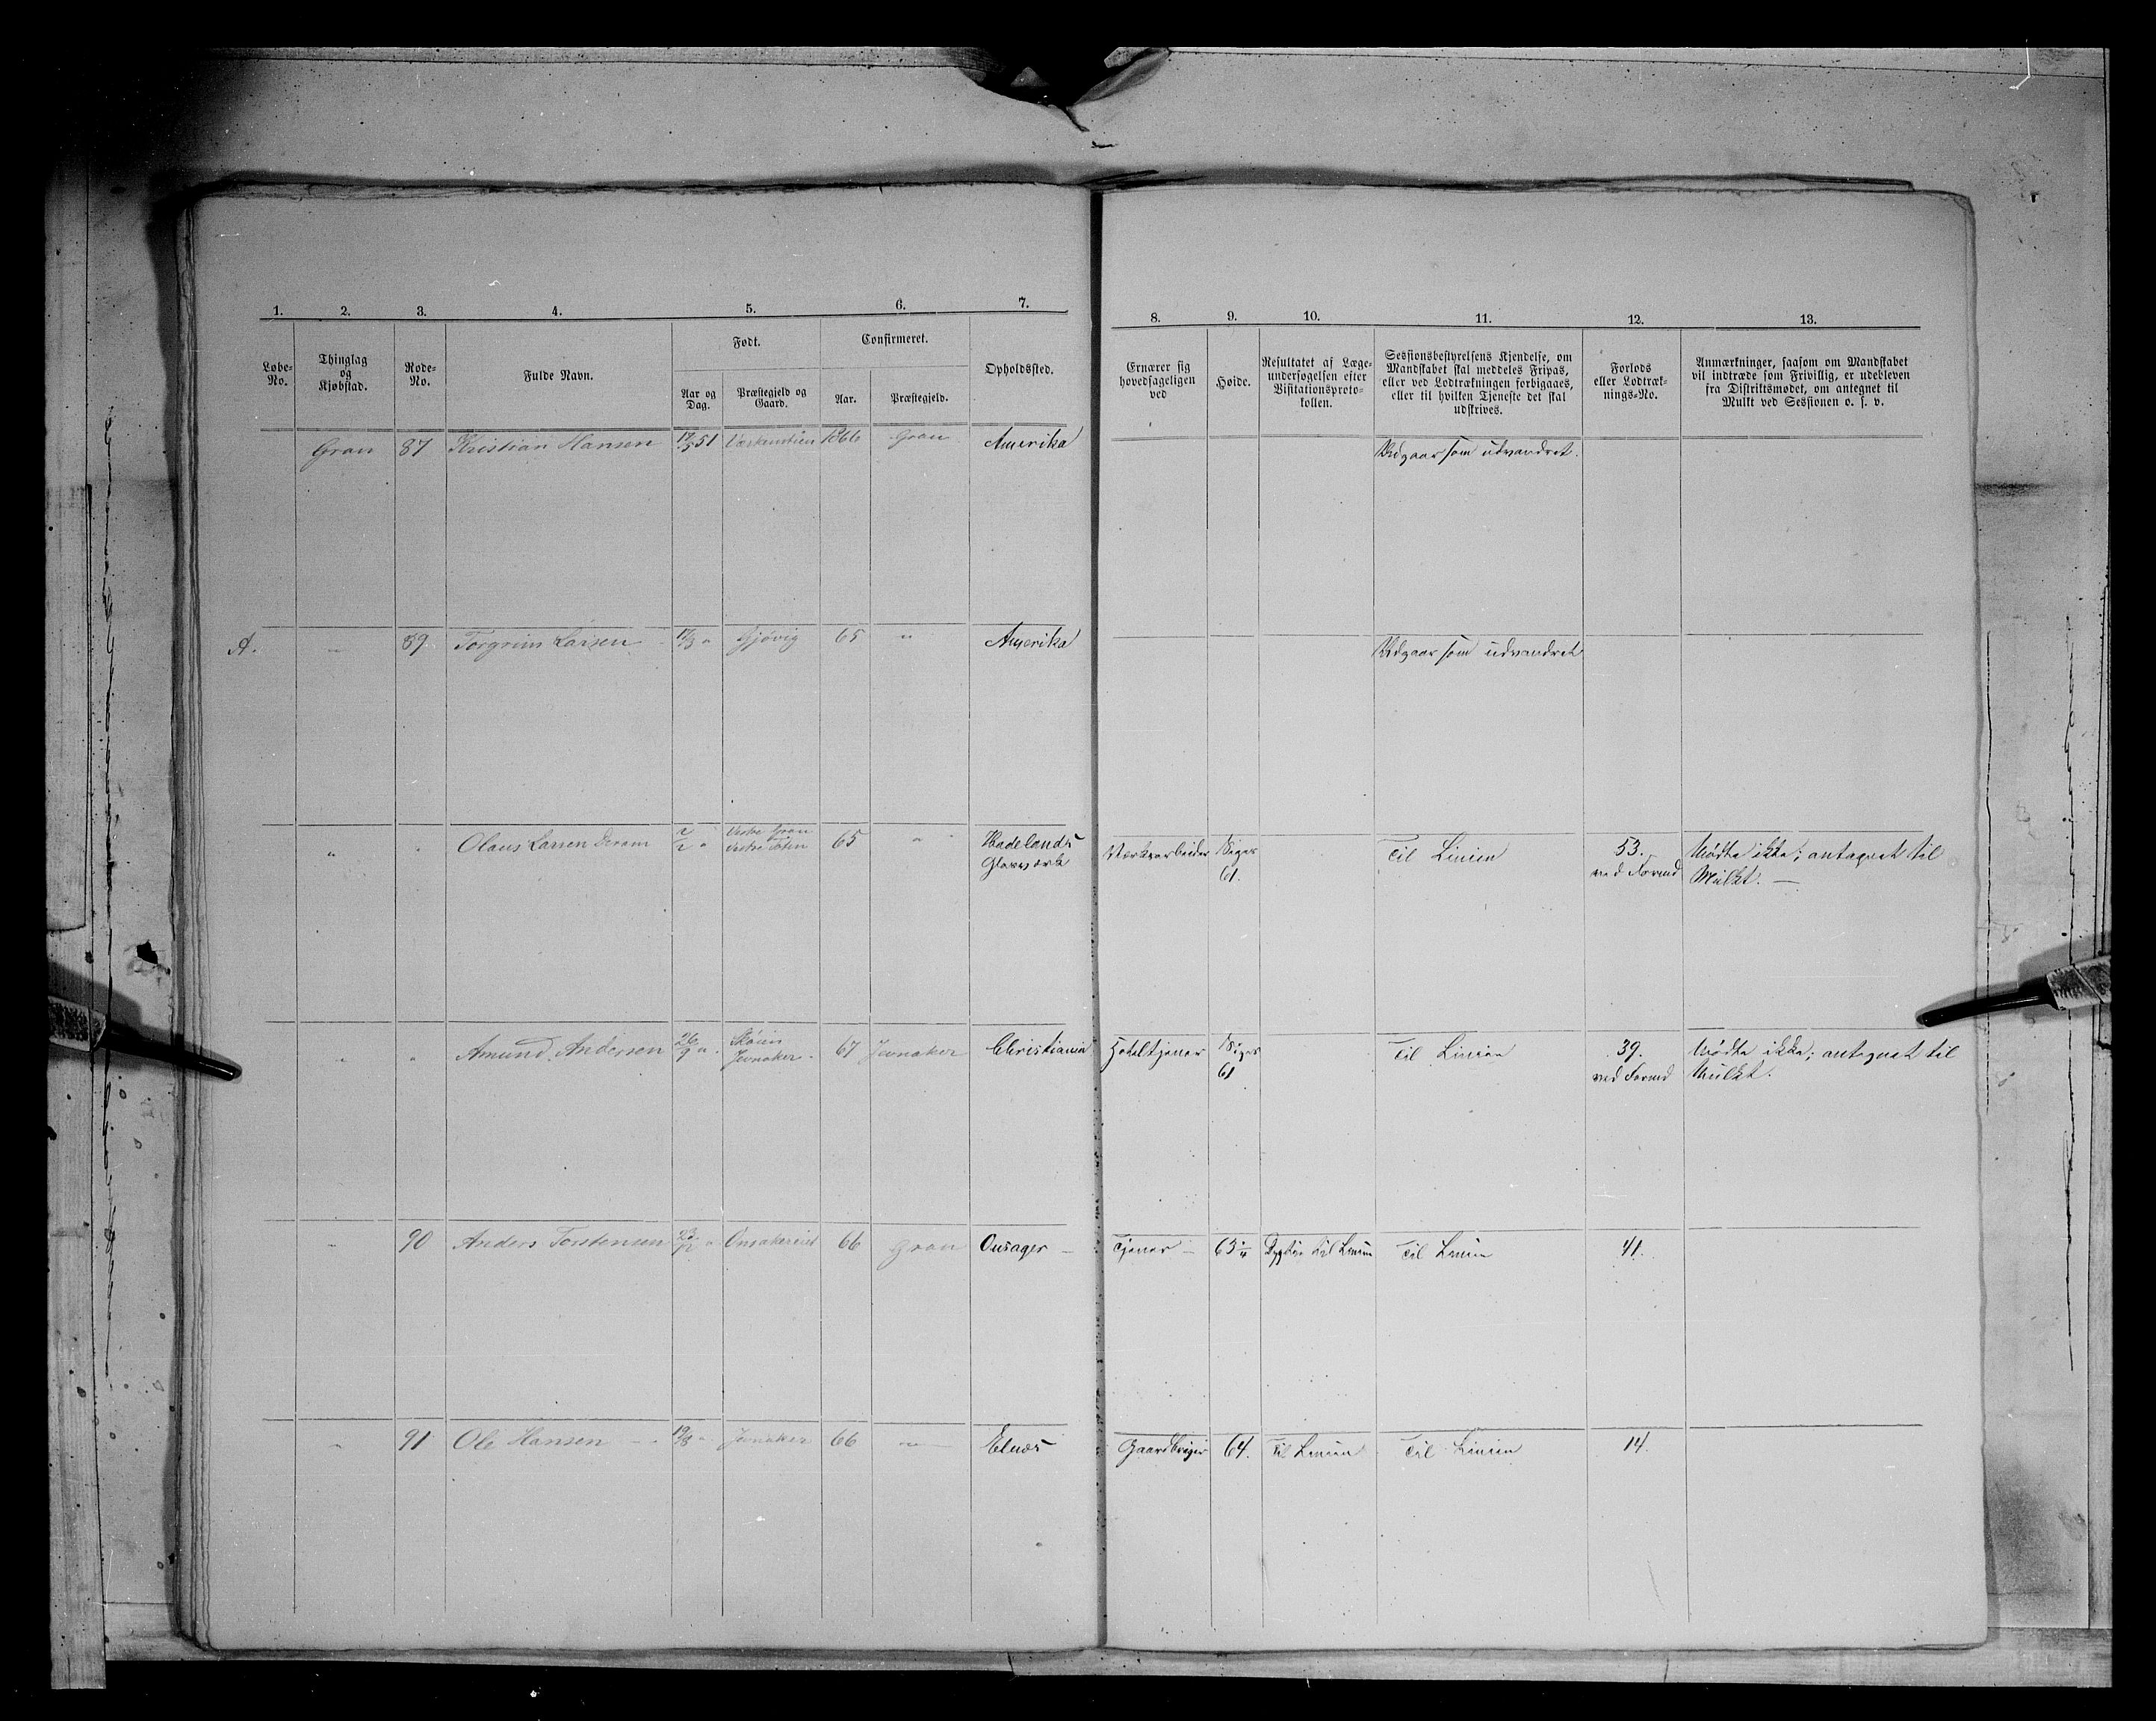 1. 2. 3. 4. 5. 6. 7. 8. 9. 10. 11. 12. 13.
Løbe-No.
Thinglag og Kjøbstad.
Rode-No.
Fulde Navn.
Født.
Aar og Dag.
Præstegjeld og Gaard.
Confirmeret.
Aar.
Præstegjeld.
Opholdssted.
Ernærer sig hovedsageligen ved
Høide.
Resultatet af Læge-undersøgelsen efter Visitationsproto-kollen.
Sessionsbestyrelsens Kjendelse, om Mandskabet skal meddeles Fripas, eller ved Lodtrækningen forbigaaes, eller til hvilken Tjeneste det skal udskrives.
Forlods eller Lodtræk-nings-No.
Anmærkninger, saasom om Mandskabet vil indtræde som Frivillig, er udebleven fra Distriktsmødet, om antegnet til Mulkt ved Sessionen o. s. v.
Gran 87 Kristian Hansen 51 1866 Gran Amerika Udgaar som udvandret.
A. " 89 Torgrim Larsen " Gjøvig 65 " Amerika Udgaar som udvandret
" " Olaus Larsen " Vestre Gran 65 " Hadelands Værksarbeider Siger Til Linien 53. Mødte ikke; antegnet til
Vestre Toten Glasværk 61. ved Forend Mulkt. —
" " Amund Andersen 26/9 " 67 Jevnaker Christiania Hoteltjener Siger Til Linien 39. Mødte ikke; antegnet til
Jevnaker 61 ved Forend Mulkt.
" 90 Anders Torstensen " Onsakereiet 66 Gran Onsager — Tjener — 63 1/4 Dygtig til Linien Til Linien 41.
" 91 Ole Hansen 19/8 " Jevnaker 66 " Elnæs Gaardbruger 64. Til Linien Til Linien 14.